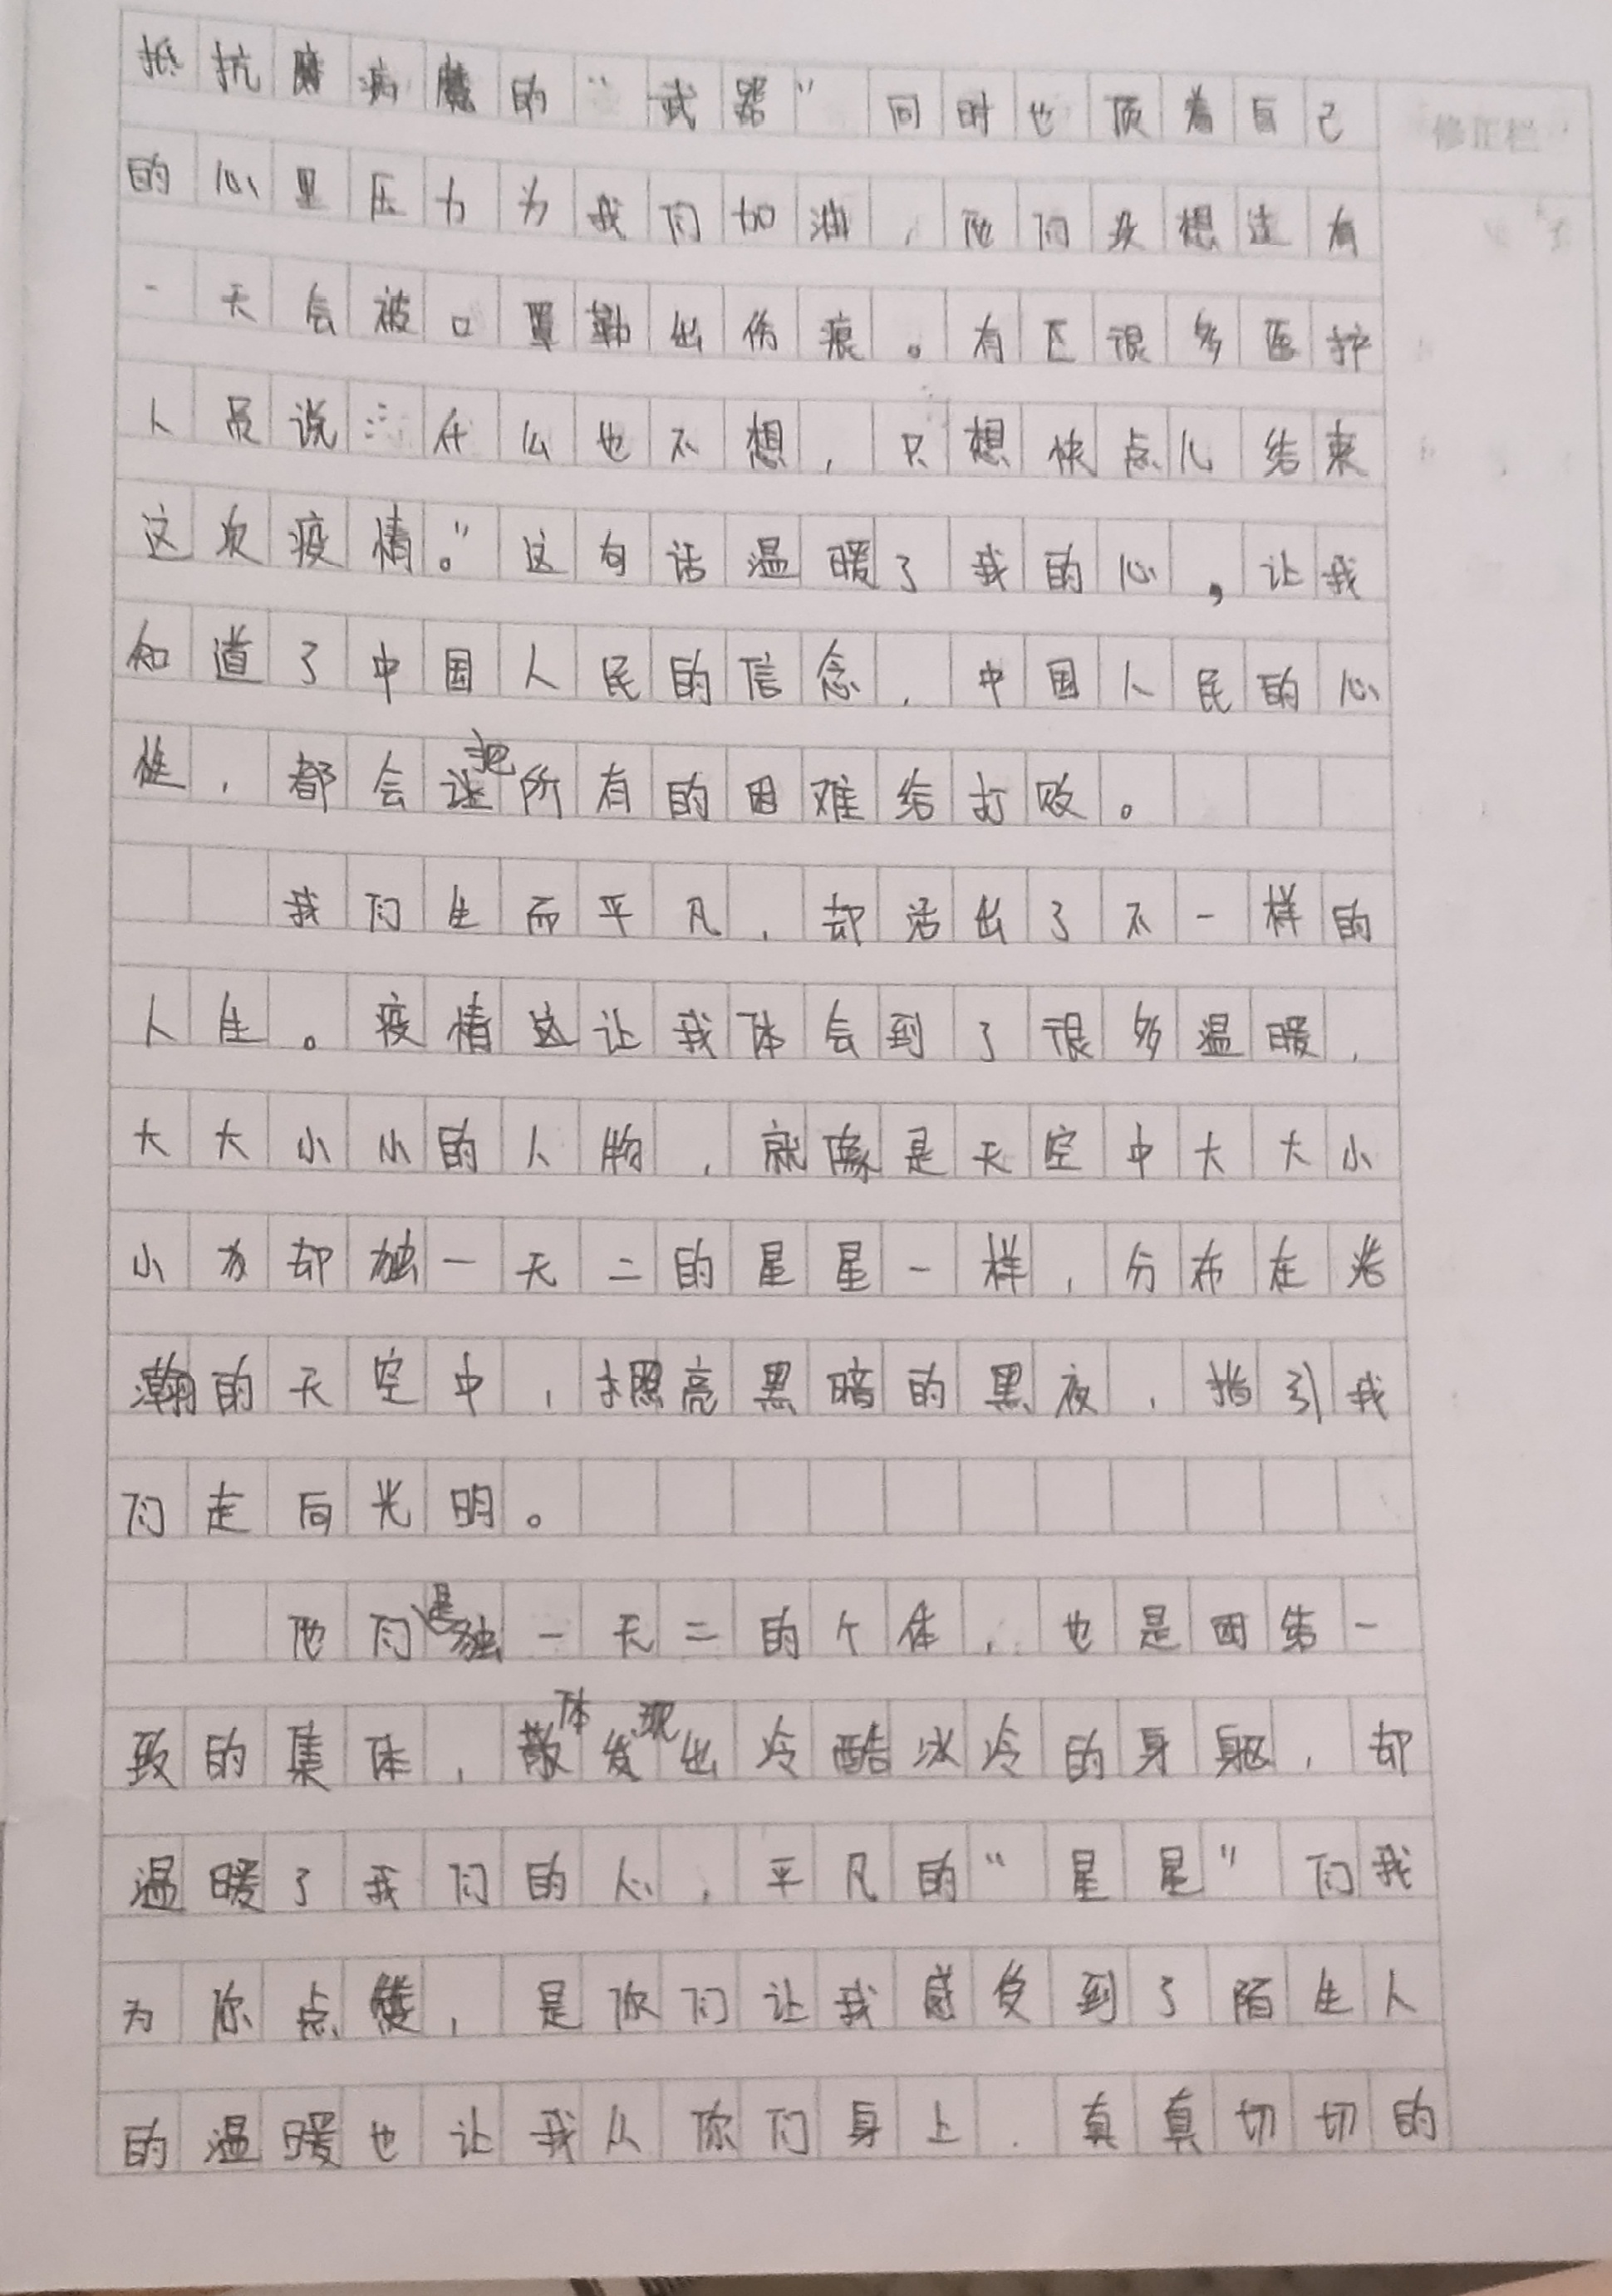 抵抗病魔的“武器”同时也顶着自己
修正栏
的心里压力为我们加油，他们没想过有
一天会被口罩勒出伤痕。有区很多医护
人员说：什么也不想，只想快点儿结束
这次疫情。”这句话温暖了我的心，让我
知道了中国人民的信念，中国人民的心
性，都会把所有的困难给打败。
我们生而平凡，却活出了不一样的
人生。疫情这让我体会到了很多温暖，
大大小小的人物，就像是天空中大大小
小却独一无二的星星一样，分布在浩
瀚的天空中，照亮黑暗的黑夜，指引我
们走向光明。
他们是独一无二的个体，也是团结一
致的集体，体现出冷酷冰冷的身躯，却
温暖了我们的心，平凡的“星星”们我
为你点赞，是你们让我感受到了陌生人
的温暖也让我从你们身上，真真切切的